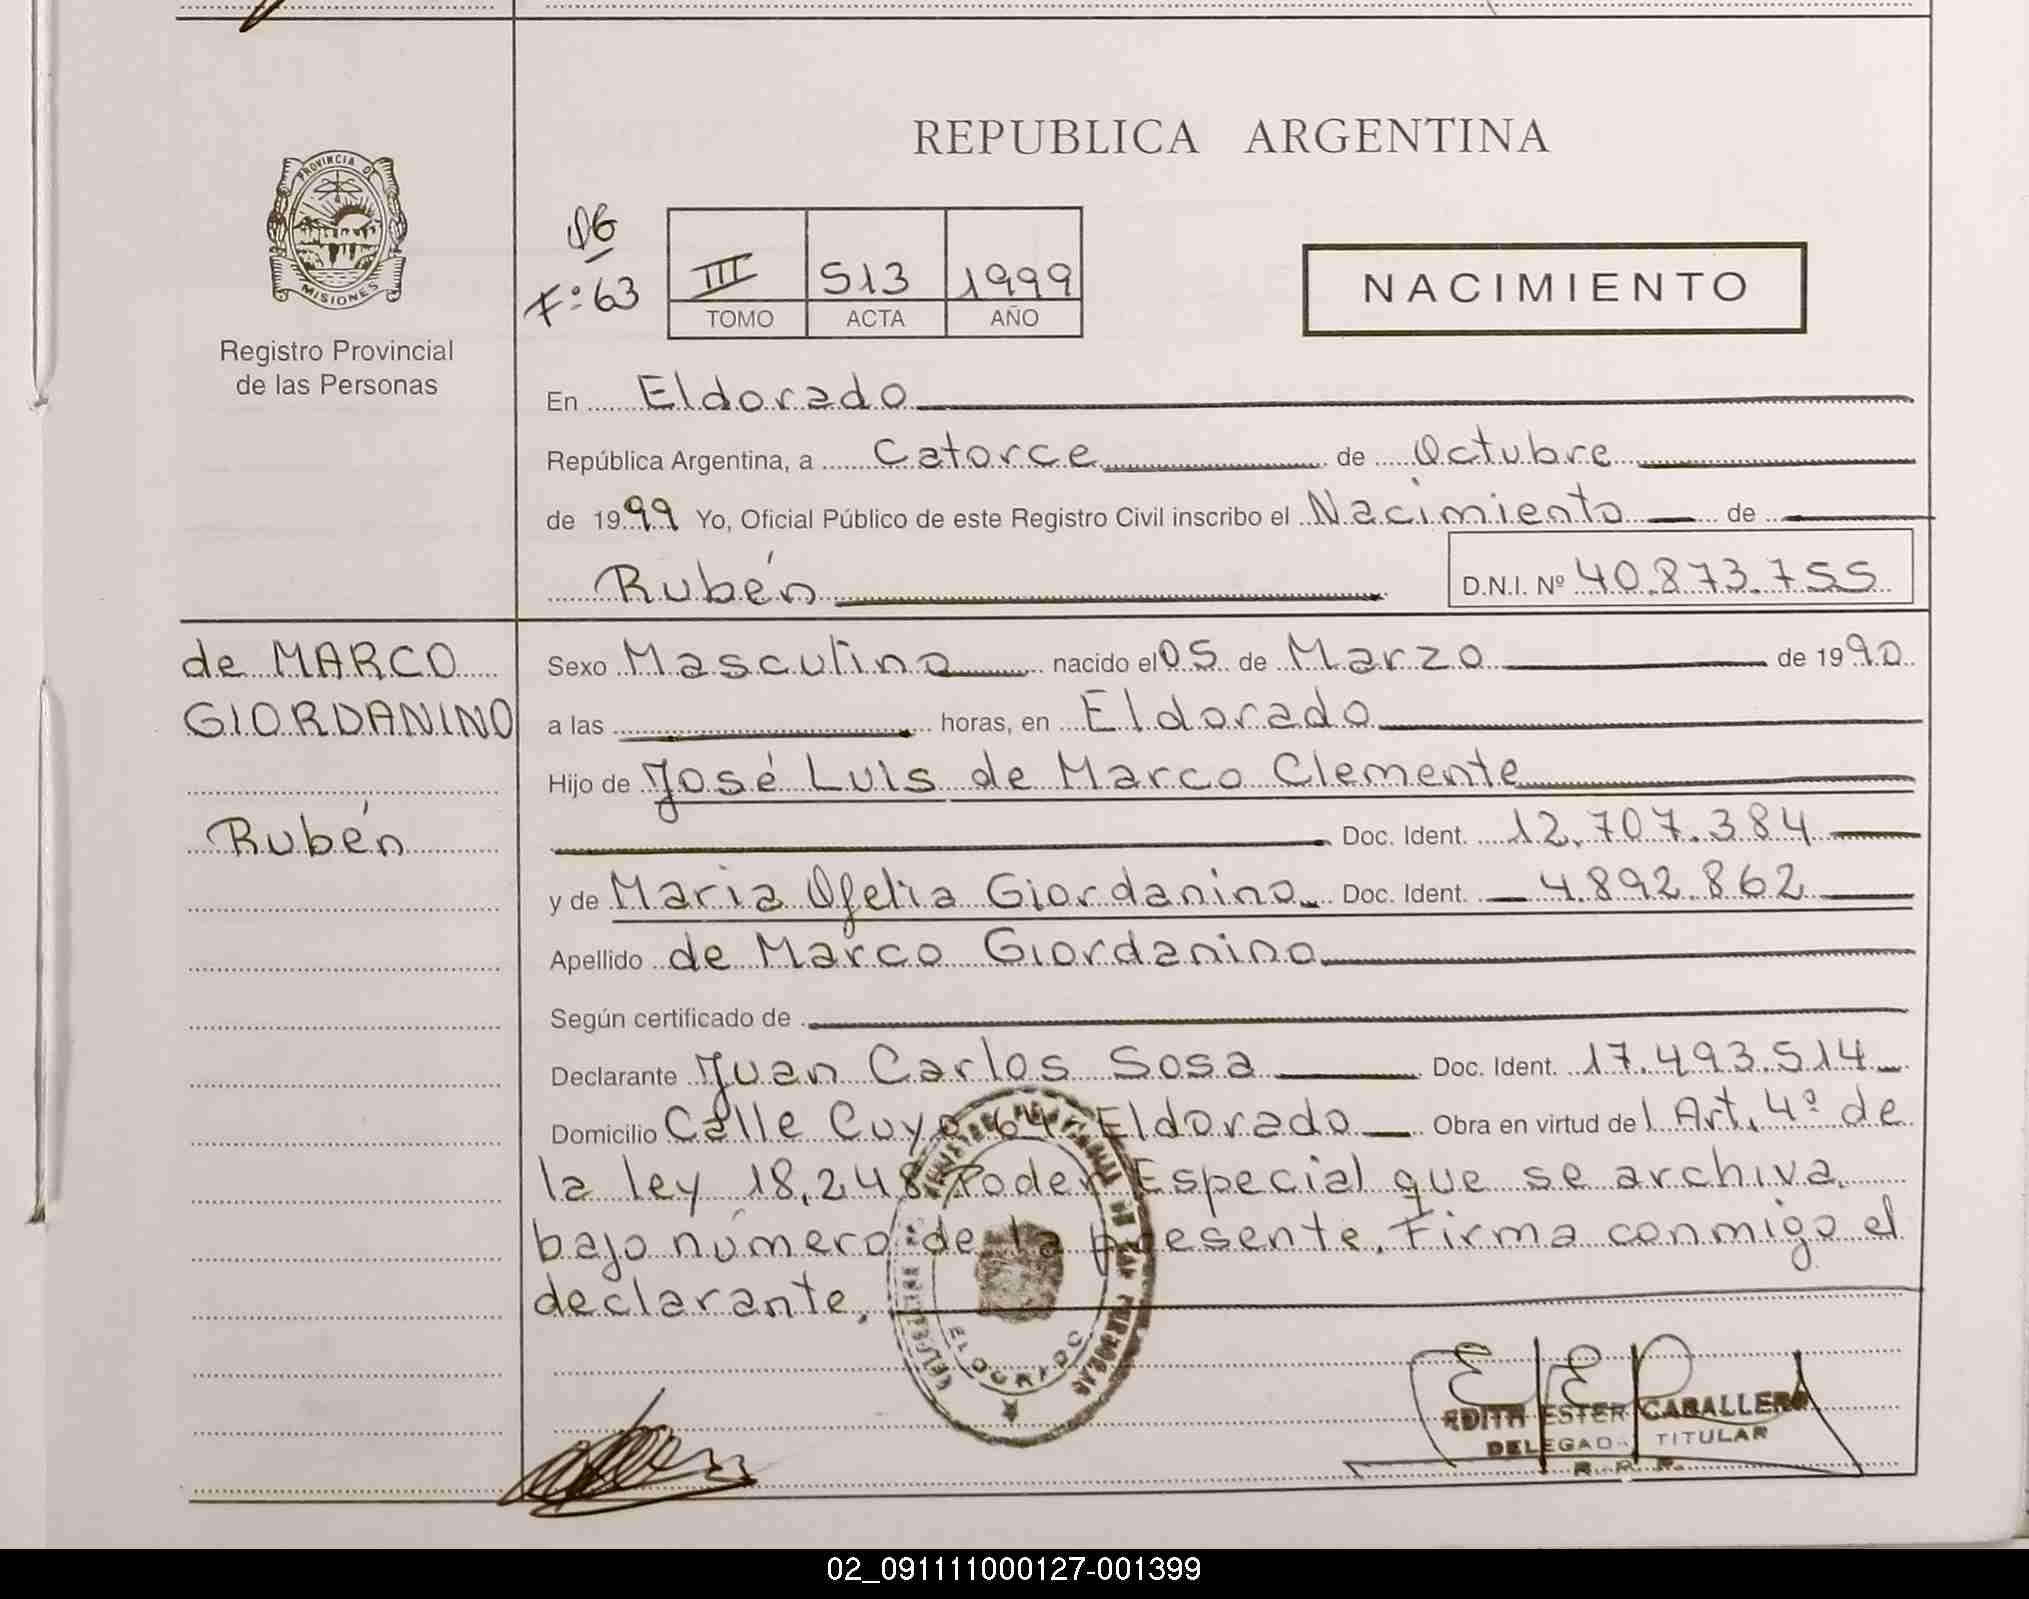 REPUBLICA ARGENTINA
PROVINCIA DE
MISIONES
Registro Provincial
de las Personas
F°: 63
III 513 1999
TOMO ACTA AÑO
NACIMIENTO
En Eldorado
República Argentina, a Catorce de Octubre
de 1999 Yo, Oficial Público de este Registro Civil inscribo el Nacimiento de
Rubén D.N.I. Nº 40.873.755
de MARCO
GIORDANINO
Rubén
Sexo Masculino nacido el 05 de Marzo de 1990
a las horas, en Eldorado
Hijo de José Luis de Marco Clemente
Doc. Ident. 12.707.384
y de Maria Ofelia Giordanino Doc. Ident. 4.892.862
Apellido de Marco Giordanino
Según certificado de
Declarante Juan Carlos Sosa Doc. Ident. 17.493.514
Domicilio Calle Cuyo 64 - Eldorado Obra en virtud del Art. 4º de
la ley 18.248 Poder Especial que se archiva
bajo número de la presente. Firma conmigo el
declarante.
ELDORADO
EDITH ESTER CABALLERO
DELEGADA TITULAR
R. P. P.
02_091111000127-001399